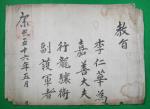 教旨
李仁華爲
嘉善大夫
行龍驤衛
副護軍者
康熙五十六年五月